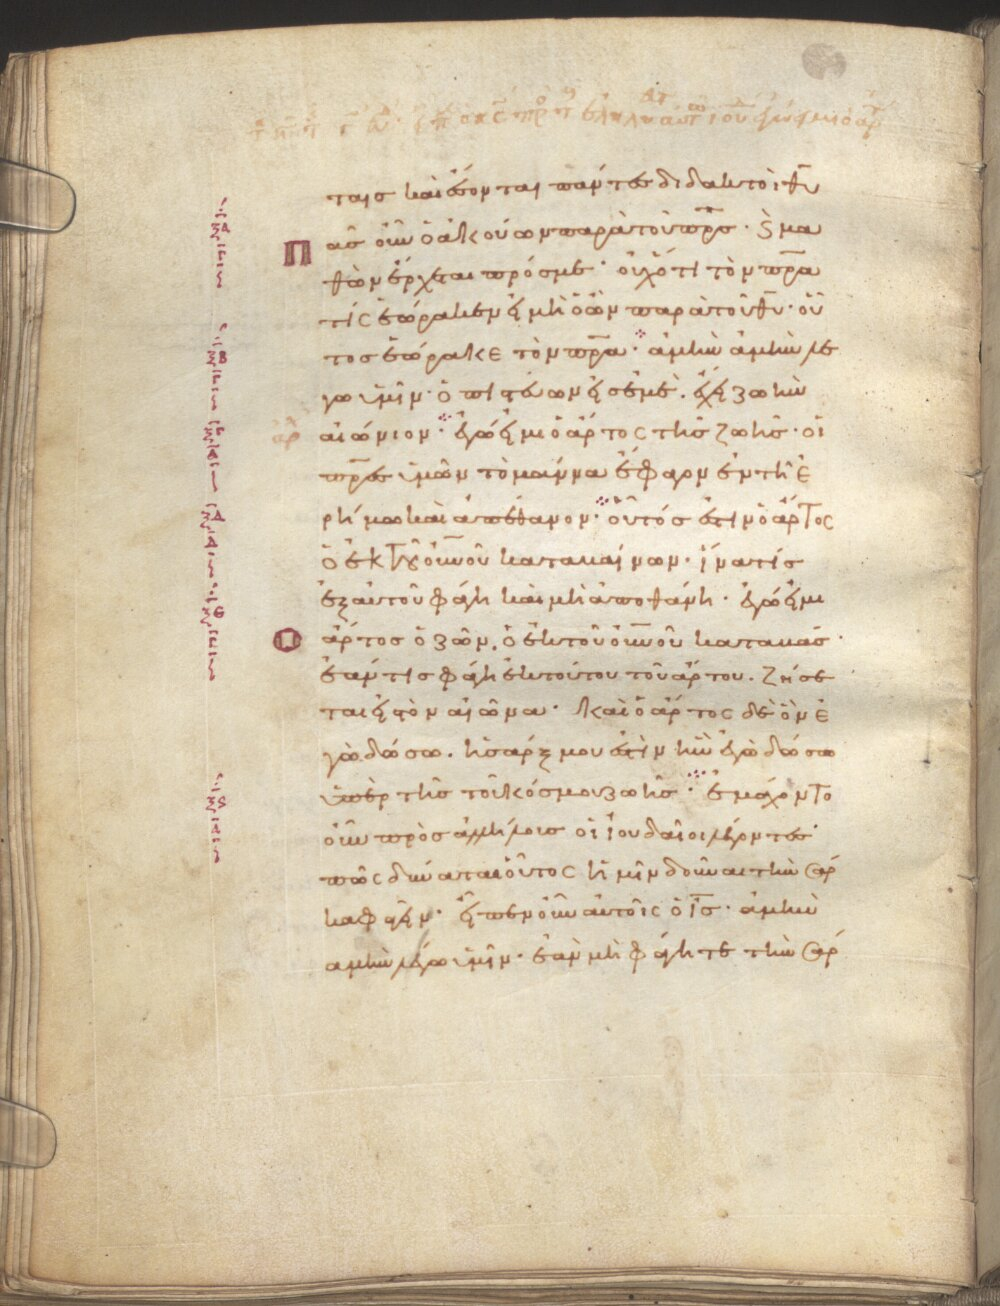 ταις καὶ ἔσονται πάντες διδακτοὶ θ̅υ̅
Π ᾶς οὖν ὁ ἀκούων παρὰ τοῦ π̅ρ̅ς̅· ϗ μα
θὼν ἔρχεται πρός με· οὐχ ὅτι τὸν π̅ρ̅α̅
τίς ἑώρακεν εἰ μὴ ὁ ὢν παρὰ τοῦ θ̅υ̅· οὗ
τος ἑώρακε τὸν π̅ρ̅α̅· ἀμὴν ἀμὴν λέ
γω ὑμῖν· ὁ πιστεύων εἰς ἐμὲ. ἔχει ζωὴν
αἰώνιον· ἐγώ εἰμι ὁ ἄρτος τῆς ζωῆς· οἱ
π̅ρ̅ε̅ς̅ ὑμῶν τὸ μάννα ἔφαγον ἐν τῇ ἐ
ρήμω καὶ ἀπέθανον· οὗτός ἐστιν ὁ ἄρτος
ὁ ἐκ τοῦ ο̅υ̅ν̅ο̅υ̅ καταβαίνων· ἵνα τίς
ἐξ αὐτοῦ φάγη καὶ μὴ ἀποθάνη· ἐγώ εἰμι
Ο ἄρτος ὁ ζῶν. ὁ ἐκ τοῦ ο̅υ̅ν̅ο̅υ̅ καταβάς·
ἐάν τις φάγη ἐκ τούτου τοῦ ἄρτου. ζήσε
ται εἰς τὸν αἰῶνα· καὶ ὁ ἄρτος δὲ ὃν ἐ
γὼ δώσω. ἡ σάρξ μου ἐστὶν ἣν ἐγὼ δώσω
ὑπὲρ τῆς τοῦ κόσμου ζωῆς· ἐμάχοντο
οὖν πρὸς ἀλλήλους οἱ ἰουδαῖοι λέγοντες·
πῶς δύναται οὗτος ἡμῖν δοῦναι τὴν σάρ
κα φαγεῖν· εἶπεν οὖν αὐτοῖς ὁ ι̅ς̅· ἀμὴν
ἀμὴν λέγω ὑμῖν· ἐὰν μὴ φάγητε τὴν σάρ